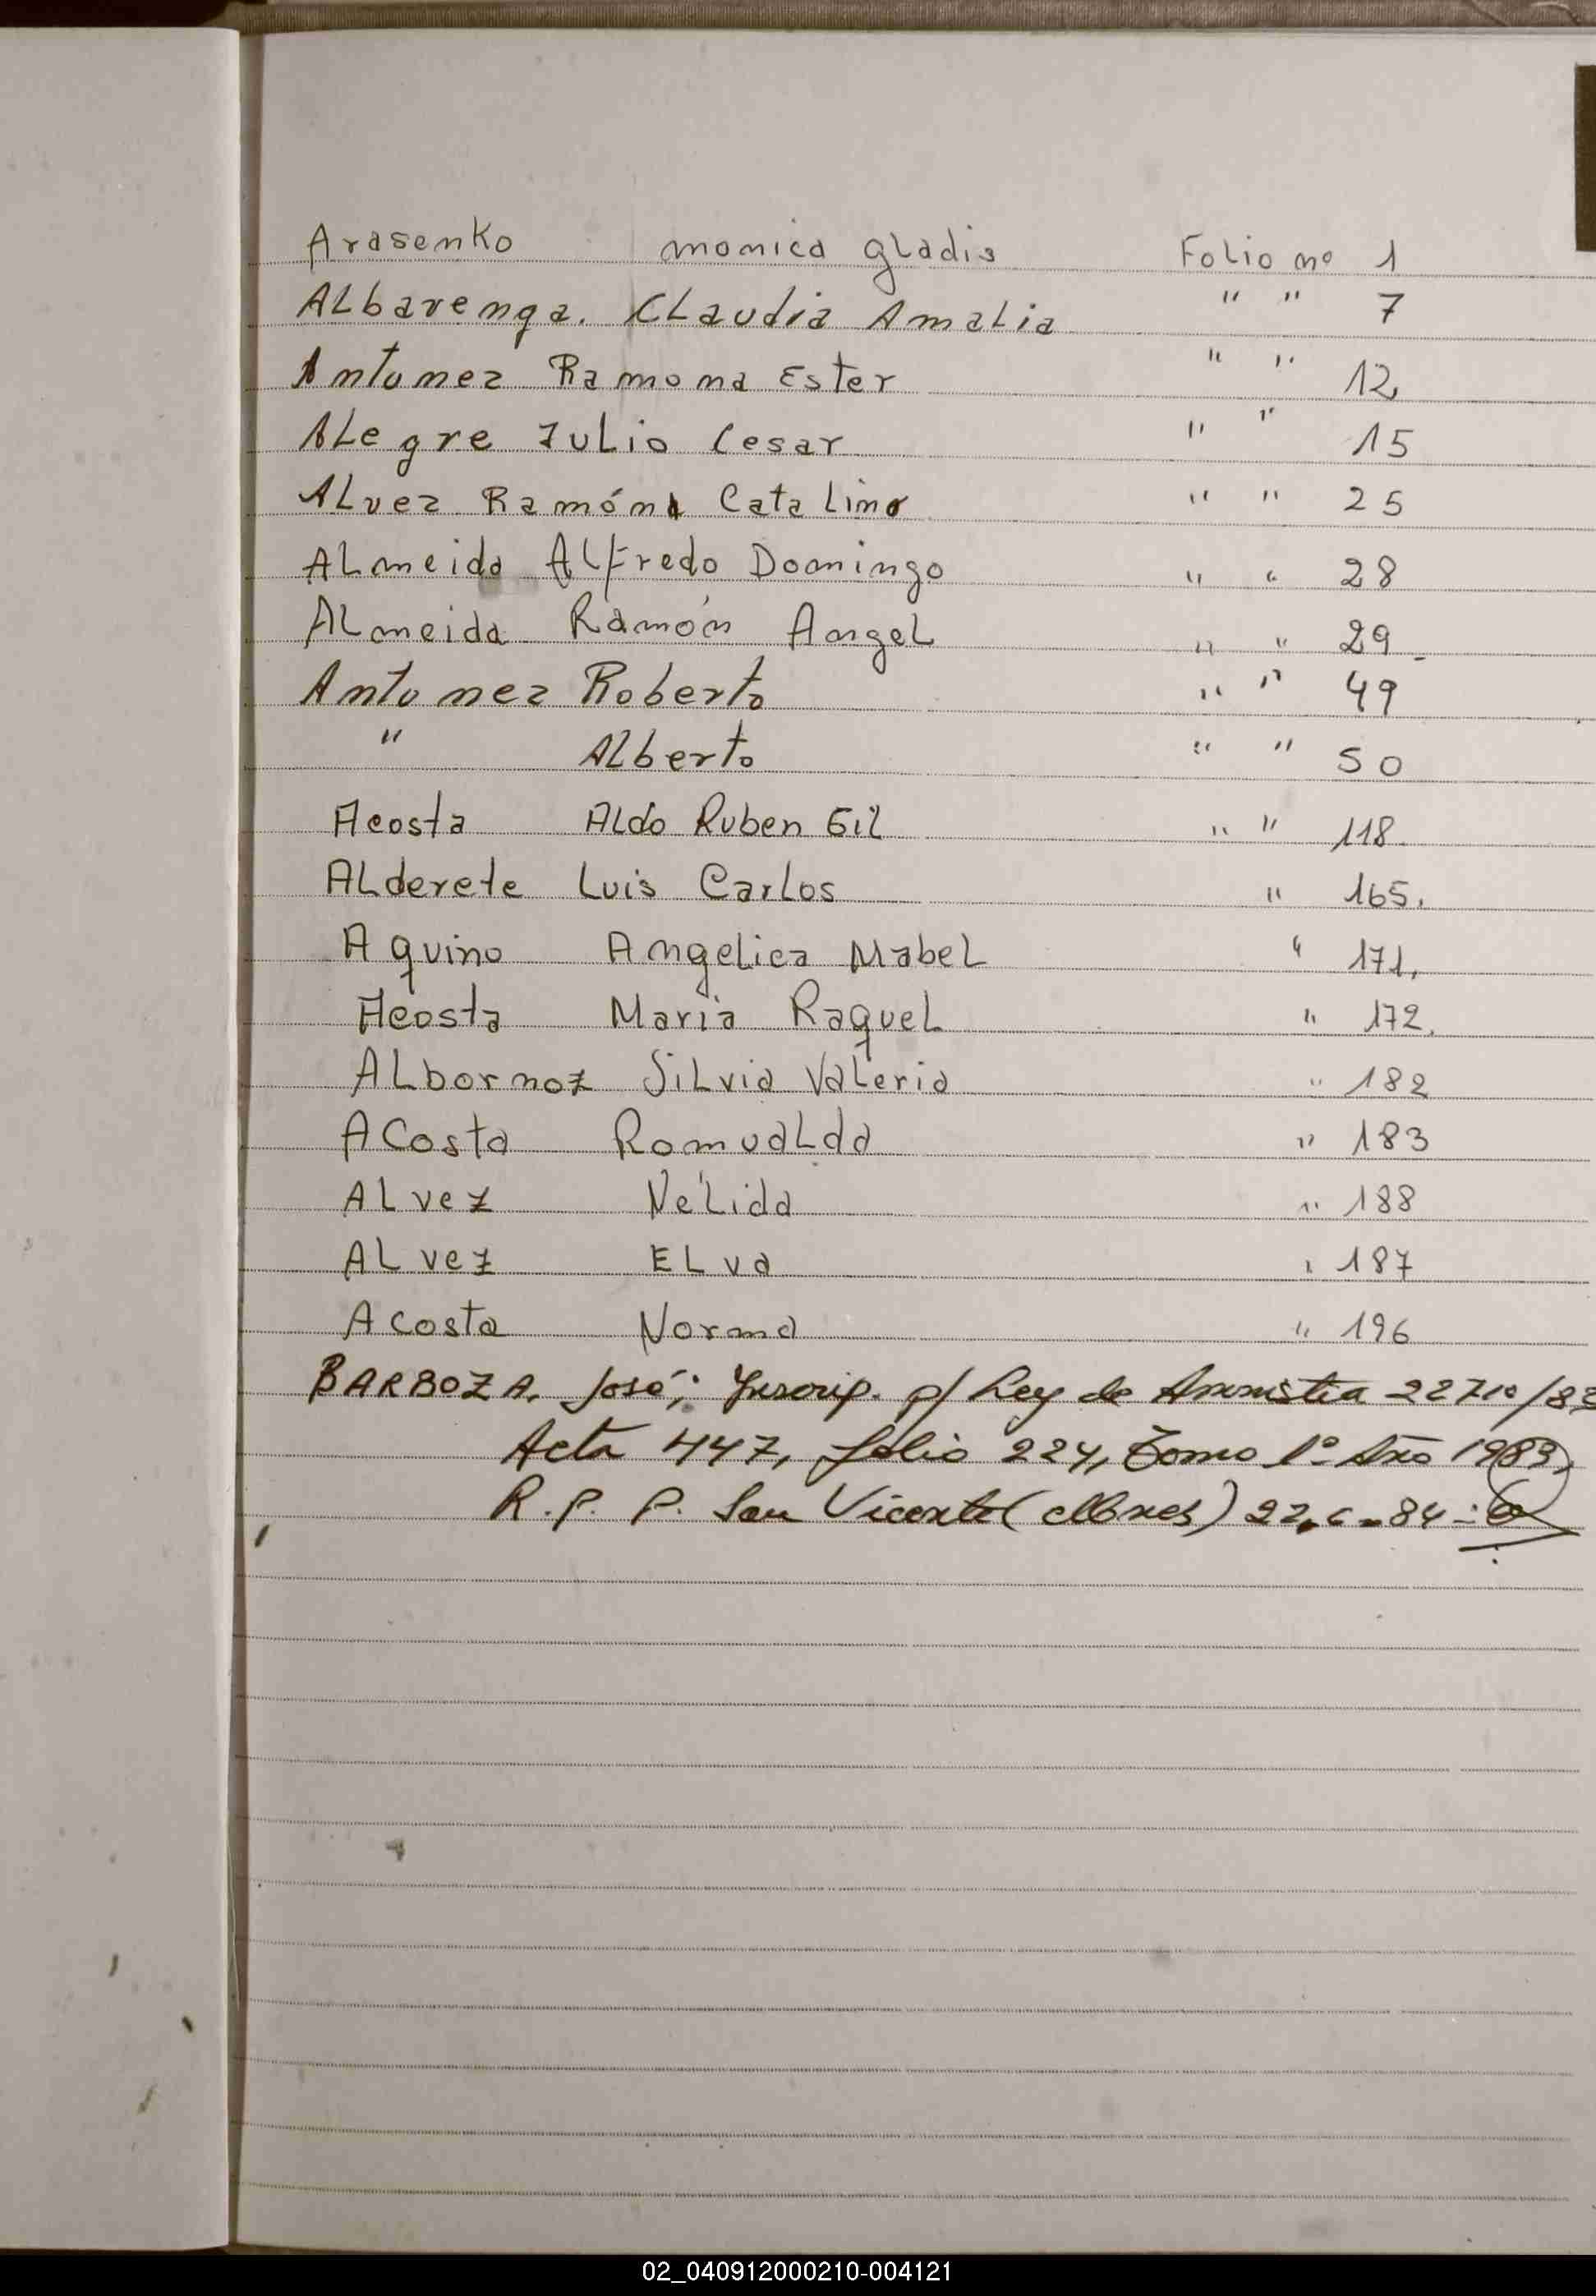 Arasenko monica gladis Folio nº 1
ALbarenga. CLaudia AmaLia " " 7
Antunez Ramona Ester " " 12
ALegre JuLio Cesar " " 15
ALvez Ramón CataLino " " 25
ALmeida ALFredo Domingo " " 28
ALmeida Ramón AngeL " " 29
Antunez Roberto " " 49
" ALberto " " 50
Acosta ALdo Ruben Gil " " 118
ALderete Luis CarLos " 165.
Aquino AngeLica MabeL " 171.
Acosta Maria RaqueL " 172.
ALbornoz SiLvia VaLeria " 182
ACosta RomuaLda " 183
ALvez NéLida " 188
ALvez ELva " 187
Acosta Norma " 196
BARBOZA, José; Inscrip. p/ Ley de Amnistia 22710/83
Acta 447, folio 224, Tomo 1º Año 1983,
R. P. P. San Vicente (Mnes) 22-6-84
02_040912000210-004121